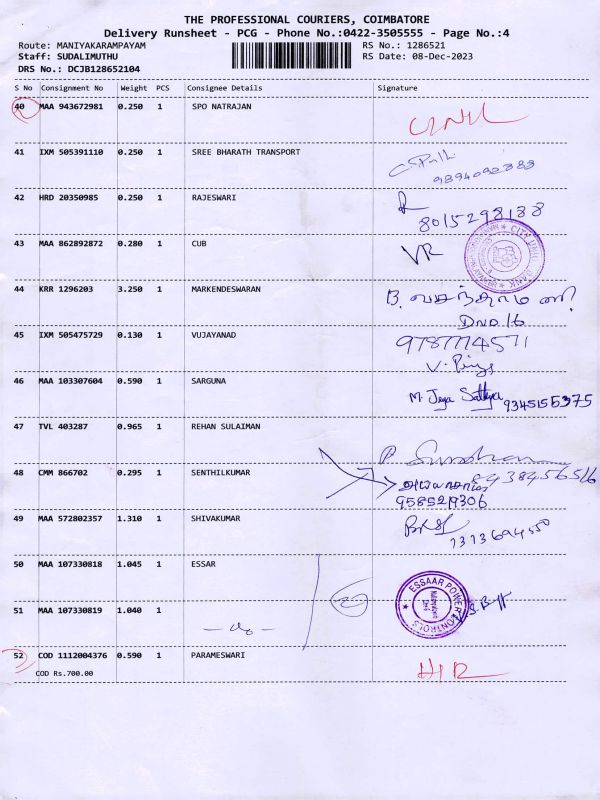 THE PROFESSIONAL COURIERS, COIMBATORE
Delivery Runsheet - PCG - Phone No.:0422-3505555 - Page No.:4
Route: MANIYAKARAMPAYAM RS No.: 1286521
Staff: SUDALIMUTHU RS Date: 08-Dec-2023
DRS No.: DCJB128652104
S No Consignment No Weight PCS Consignee Details Signature
40 MAA 943672981 0.250 1 SPO NATRAJAN
41 IXM 505391110 0.250 1 SREE BHARATH TRANSPORT
42 HRD 20350985 0.250 1 RAJESWARI R
8015298188
43 MAA 862892872 0.280 1 CUB VR
44 KRR 1296203 3.250 1 MARKENDESWARAN B.
DNO 16
45 IXM 505475729 0.130 1 VUJAYANAD 9787774571
46 MAA 103307604 0.590 1 SARGUNA M. Jeya Sathya 9345155375
47 TVL 403287 0.965 1 REHAN SULAIMAN
48 CMM 866702 0.295 1 SENTHILKUMAR
49 MAA 572802357 1.310 1 SHIVAKUMAR
50 MAA 107330818 1.045 1 ESSAR
ESSAAR POWER CONTROLS
51 MAA 107330819 1.040 1
52 COD 1112004376 0.590 1 PARAMESWARI
COD Rs.700.00